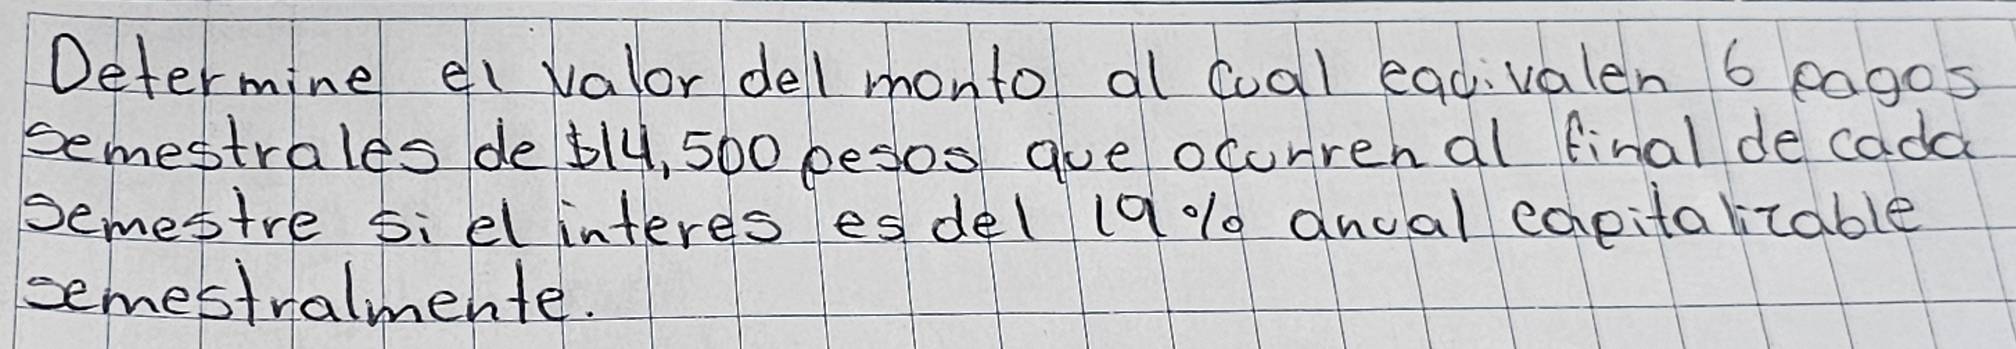 Determine el valor del monto al cual equivalen 6 pagos
semestrales de $14,500 pesos que ocurren al final de cada
semestre si el interes es del 19% anual capitalizable
semestralmente.